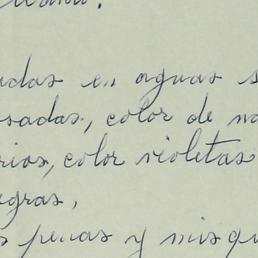 adas en aguas s
sadas, color de na
rios, color violetas
egras,
s penas y mis qu